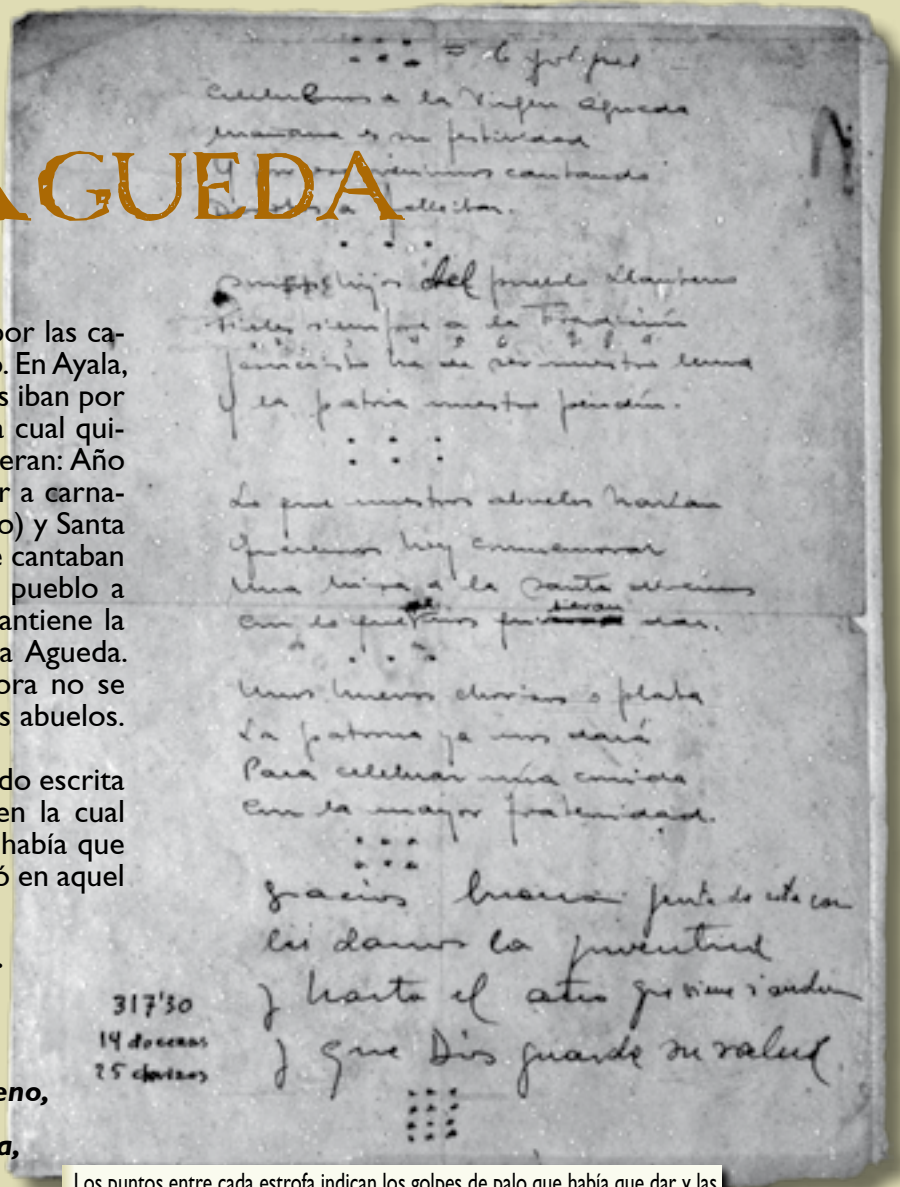 AGUEDA
por las ca-
o. En Ayala,
s iban por
a cual qui-
eran: Año
r a carna-
o) y Santa
e cantaban
pueblo a
antiene la
a Agueda.
ora no se
s abuelos.
do escrita
en la cual
había que
ó en aquel
eno,
a,
= 6 golpes
Celebramos a la Virgen Agueda
mañana es su festividad
Y cantando
a felicitar.
hijos del pueblo Llanteno
Fieles siempre a la Tradición
ha de ser nuestro lema
y la patria nuestro pendón.
Lo que nuestros abuelos harían
Queremos hoy conmemorar
Una misa a la Santa
con lo que dar.
Unos huevos chorizo o plata
La patrona ya nos dará
Para celebrar una comida
con la mayor fraternidad.
gracias buena gente de esta casa
les damos la juventud
y hasta el año que viene si
y que Dios guarde su salud
317'30
14 docenas
25 chorizos
Los puntos entre cada estrofa indican los golpes de palo que había que dar y las